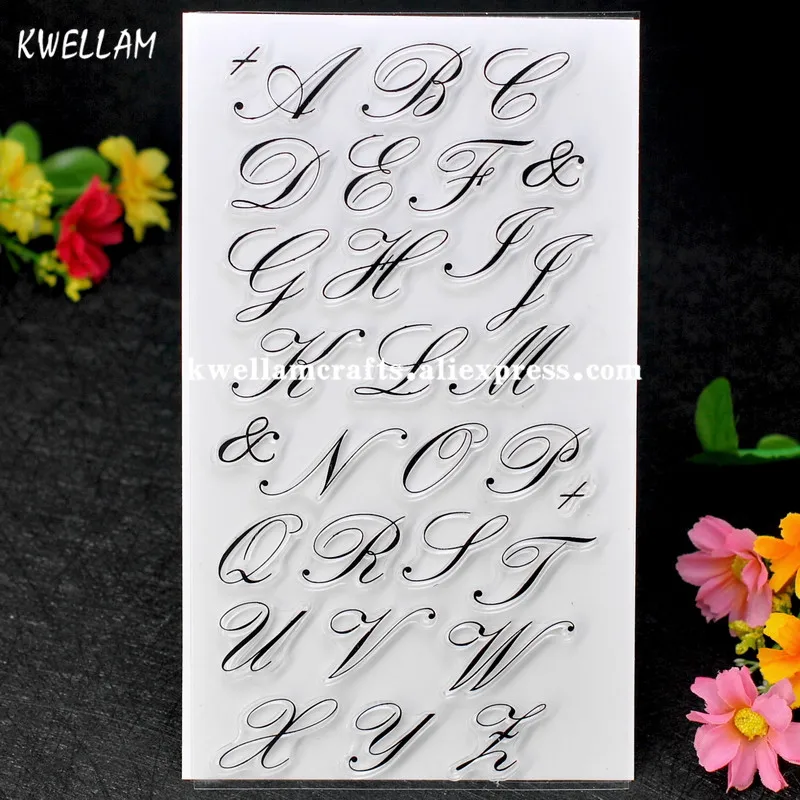 KWELLAM
+ A B C
D E F &
G H I J
K L M
kwellamcrafts.aliexpress.com
& N O P +
Q R S T
U V W
X Y Z